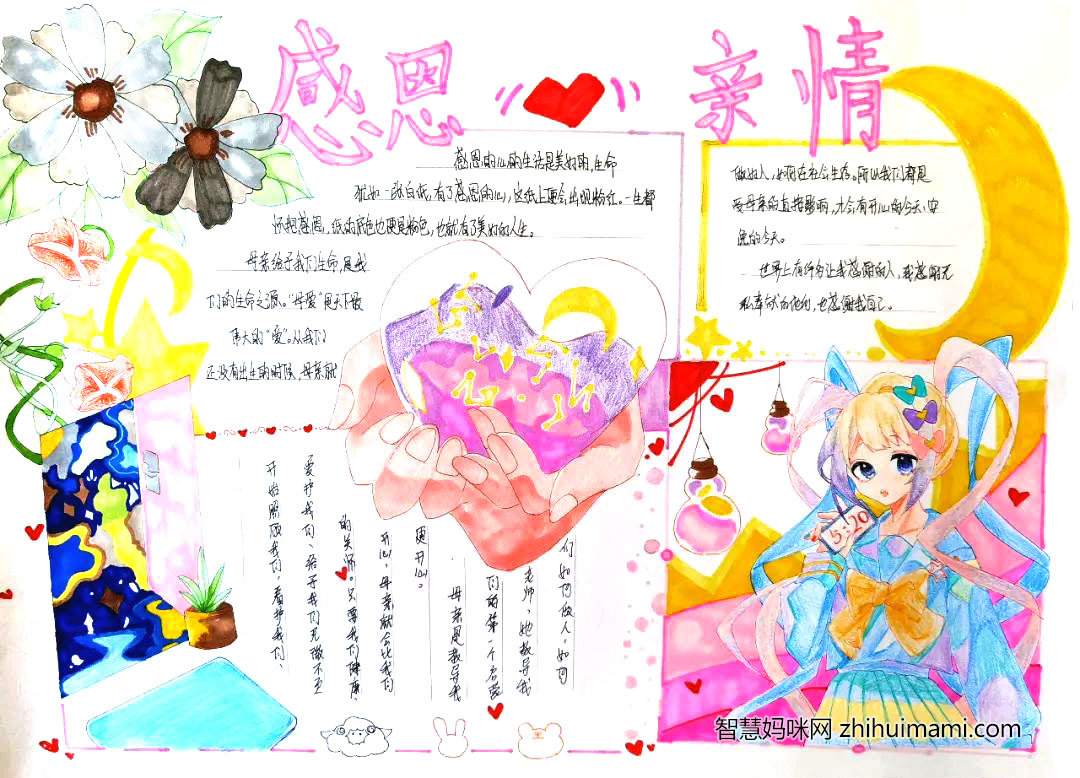 感恩 亲情
感恩的心的生活是美好的,生命
犹如一张白纸,有了感恩的心,这纸上便会出现粉红。一生都
怀抱感恩,纸的底色也便是粉色,也就有了美好的人生。
母亲给予我们生命,是我
们的生命之源。“母爱”是天下最
伟大的“爱”。从我们
还没有出生的时候,母亲就
开始照顾我们,看护我们、
爱护我们、给予我们无微不至
的关怀。只要我们健康、
开心,母亲就会比我们
更开心。
母亲是教导我
们的第一个启蒙
老师,她教导我
们如何做人,如何
做好人,如何在社会生存。所以我们都是
受母亲的直接影响,才会有开心的今天、安
逸的今天。
世界上有许多让我感谢的人,我感谢无
私奉献的他们,也感谢我自己。
5:20
智慧妈咪网 zhihuimami.com